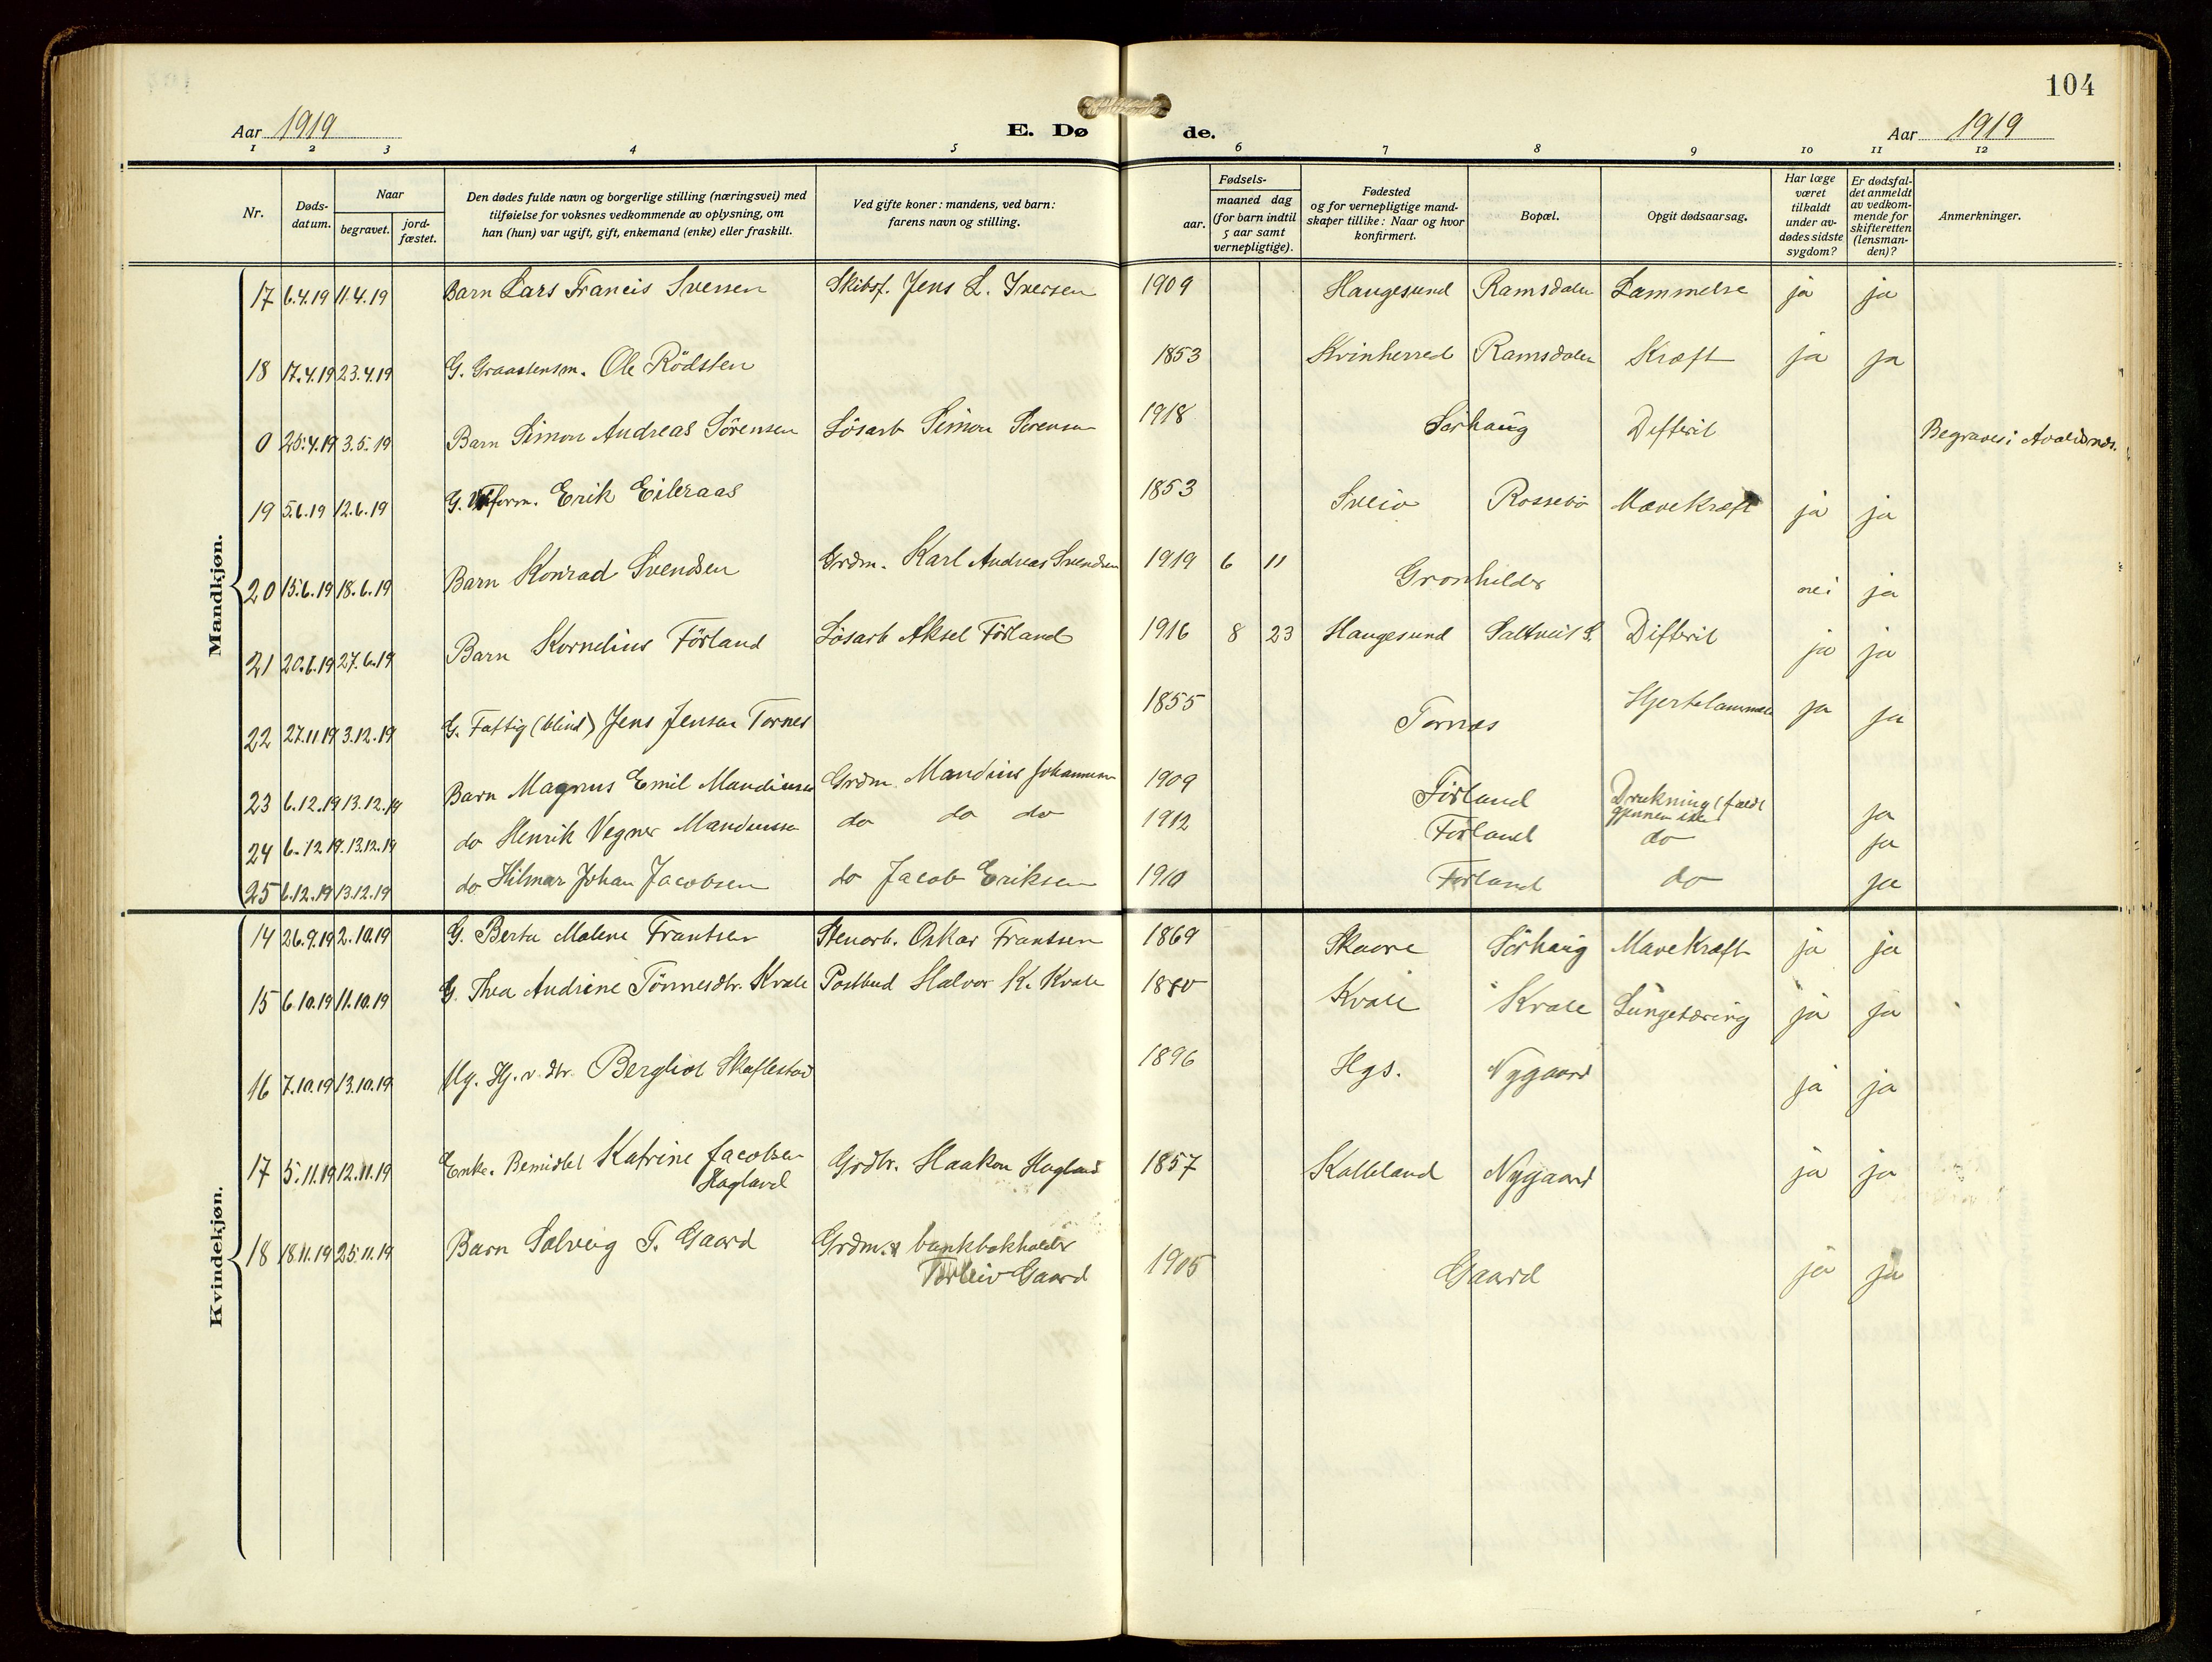 104
Aar 1919
E. Dø de.
Aar 1919
1 2 3 4 5 6 7 8 9 10 11 12
Nr.
Døds-
datum.
Naar
begravet.
jord-
fæstet.
Den dødes fulde navn og borgerlige stilling (næringsvei) med
tilføielse for voksnes vedkommende av oplysning, om
han (hun) var ugift, gift, enkemand (enke) eller fraskilt.
Ved gifte koner: mandens, ved barn:
farens navn og stilling.
Fødsels-
aar.
maaned dag
(for barn indtil
5 aar samt
vernepligtige).
Fødested
og for vernepligtige mand-
skaper tillike: Naar og hvor
konfirmert.
Bopæl.
Opgit dødsaarsag.
Har læge
været
tilkaldt
under av-
dødes sidste
sygdom?
Er dødsfal-
det anmeldt
av vedkom-
mende for
skifteretten
(lensman-
den)?
Anmerkninger.
Mandkjøn.
17 6.4.19 11.4.19 Barn Lars Francis Iversen Skibsf. Jens L. Iversen 1909 Haugesund Ramsdalen Lammelse ja ja
18 17.4.19 23.4.19 G. Graastensm. Ole Rödsten 1853 Kvinherred Ramsdalen Kræft ja ja
0 25.4.19 3.5.19 Barn Simon Andreas Sörensen Lösarb Simon Sörensen 1918 Sörhaug Difterit Begraves i Avaldsnes.
19 5.6.19 12.6.19 G. Erik Eileraas 1853 Sveio Rossebö Mavekræft ja ja
20 15.6.19 18.6.19 Barn Konrad Svendsen Grdm. Karl Andreas Svendsen 1919 6 11 Gronhilder nei ja
21 20.6.19 27.6.19 Barn Kornelius Förland Lösarb Aksel Förland 1916 8 23 Haugesund Saltveit S. Difterit ja ja
22 27.11.19 3.12.19 G. Fattig (blind) Jens Jensen Tornes 1855 Tornæs Hjertelammelse ja ja
23 6.12.19 13.12.19 Barn Magnus Emil Mandiussen Grdm Mandius Johannessen 1909 Förland Drukning (faldt
gjennem isen) ja
24 6.12.19 13.12.19 do Henrik Vegner Mandiussen do do do 1912 Förland do ja
25 6.12.19 13.12.19 do Hilmar Johan Jacobsen do Jacob Eriksen 1910 Förland do ja
Kvindekjøn.
14 26.9.19 2.10.19 G. Berta Malene Frantsen Stenarb. Oskar Frantsen 1869 Skaare Sörhaug Mavekræft ja ja
15 6.10.19 11.10.19 G. Thea Andrine Tönnesdtr. Kvale Postbud Halvor K. Kvale 1880 Kvale Kvale Lungetæring ja ja
16 7.10.19 13.10.19 Ug. Hj.v. dtr. Bergliot Skaflestad 1896 Hgs. Nygaard ja ja
17 5.11.19 12.11.19 Enke. Bemidlet Katrine Jacobsen
Hagland Grdbr. Haakon Hagland 1857 Kalleland Nygaard ja ja
18 18.11.19 25.11.19 Barn Solveig T. Gaard Grdm. & bankbokholder
Torleiv Gaard 1905 Gaard ja ja